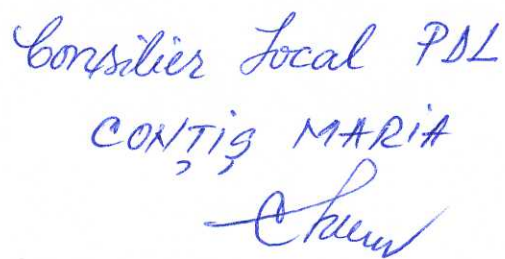 Consilier Local PDL
CONȚIȘ MARIA